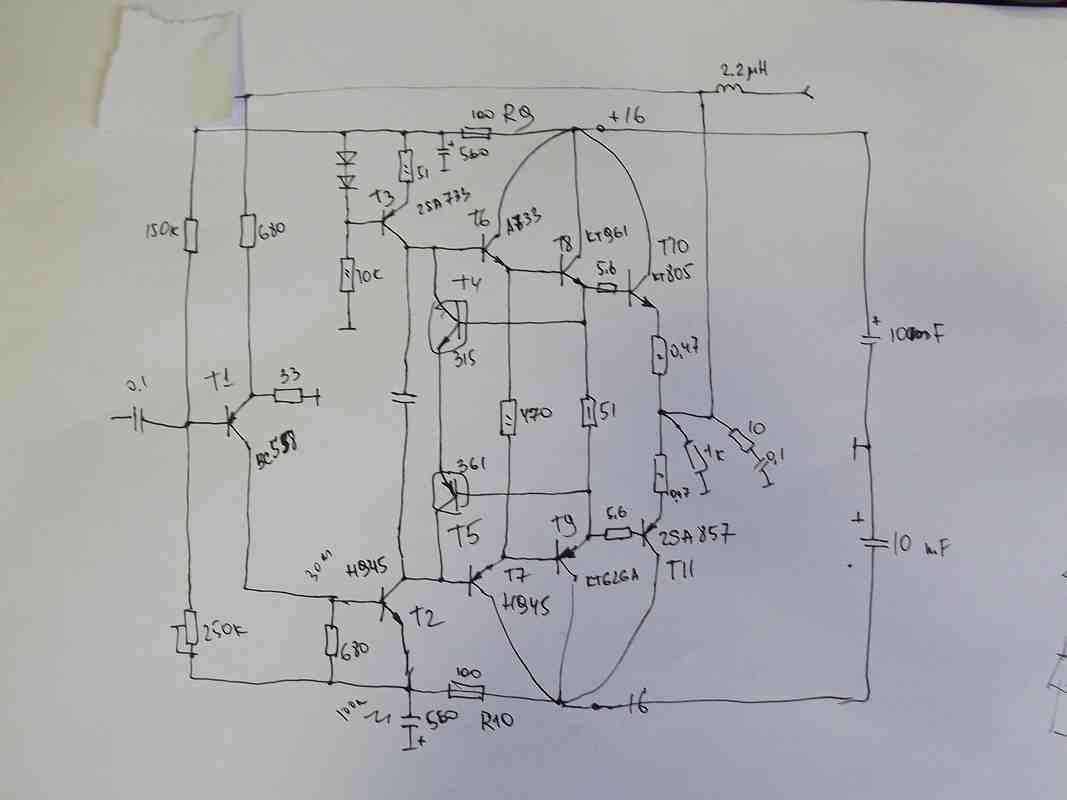 2.2 µH
100 R9
+16
560
51
T3
2SA733
150K
680
T6
A733
T8
KT961
T10
KT805
5.6
10K
T4
315
0,47
100mF
0.1
T1
33
BC558
470
51
10
0,1
1K
361
T5
0,47
5.6
T9
2SA857
T11
10 mF
H945
T2
T7
H945
KT626A
250K
680
100
R10
560
-16